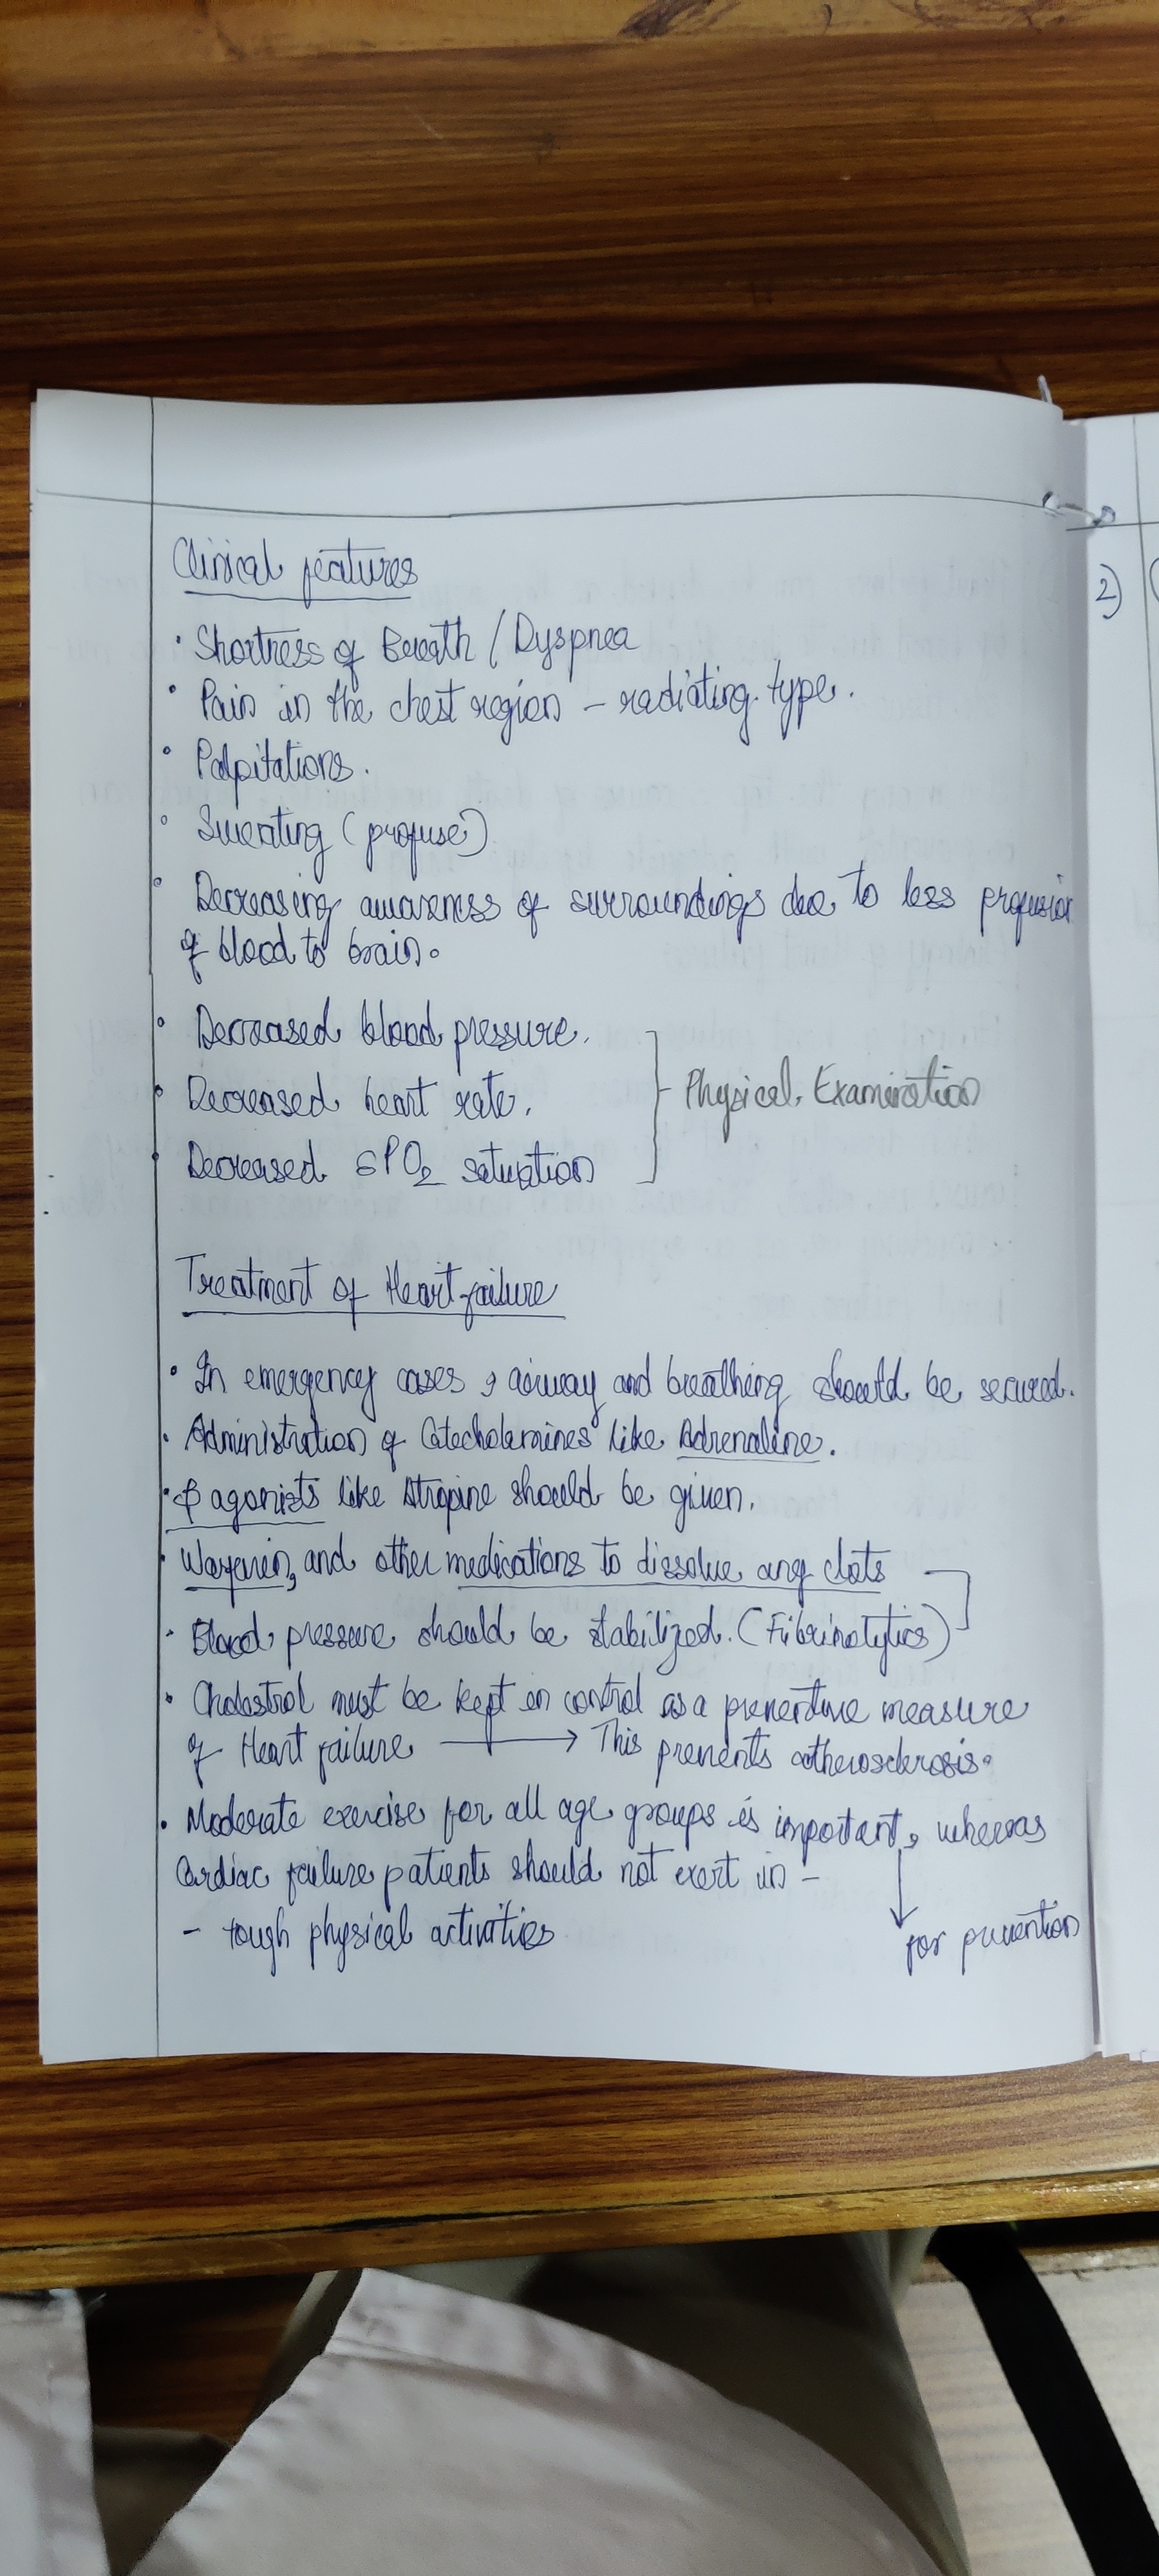 Clinical features
• Shortness of Breath / Dyspnea
• Pain in the chest region – radiating type.
• Palpitations.
• Sweating (profuse)
• Decreasing awareness of surroundings due to less profusion
of blood to brain.
• Decreased blood pressure.
• Decreased heart rate.
Physical Examination
• Decreased SPO2 satuation
Treatment of Heart failure
• In emergency cases, airway and breathing should be secured.
• Administration of Catecholamines like Adrenaline.
• β agonists like Atropine should be given.
• Warfarin, and other medications to dissolve any clots
• Blood pressure should be stabilized. (Fibrinolytics)
• Cholestrol must be kept in control as a preventive measure
of Heart failure → This prevents atherosclerosis.
• Moderate exercise for all age groups is important, whereas
Cardiac failure patients should not exert in –
– tough physical activities
for prevention
2)